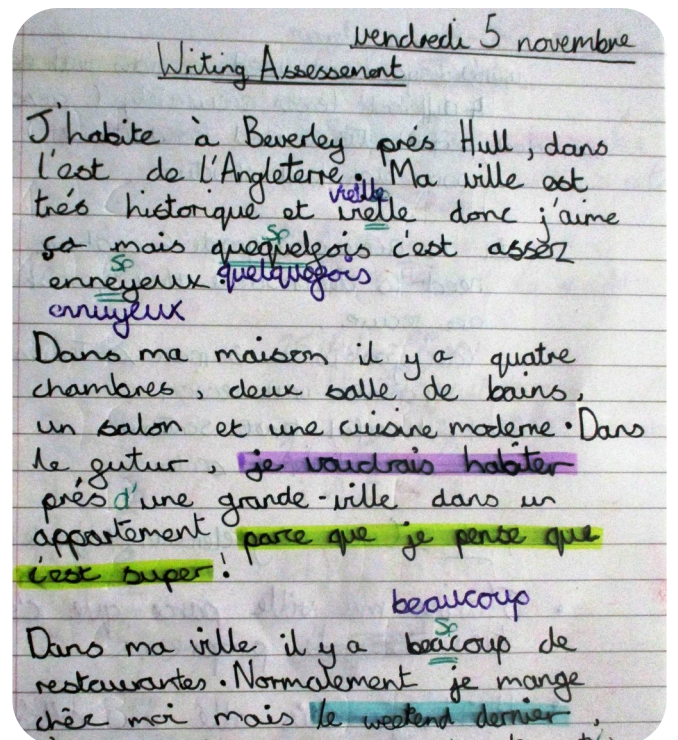 vendredi 5 novembre
Writing Assessement
J'habite à Beverley prés Hull, dans
l'est de l'Angleterre. Ma ville est
vielle
trés historique et vielle donc j'aime
sp
ça mais quequefois c'est assez
sp
enneyeux. quelquefois
ennuyeux
Dans ma maison il y a quatre
chambres, deux salle de bains,
un salon et une cuisine moderne. Dans
le futur, je voudrais habiter
prés d'une grande-ville dans un
appartement parce que je pense que
c'est super!
beaucoup
sp
Dans ma ville il y a beacoup de
restaurantes. Normalement je mange
chéz moi mais le weekend dernier,